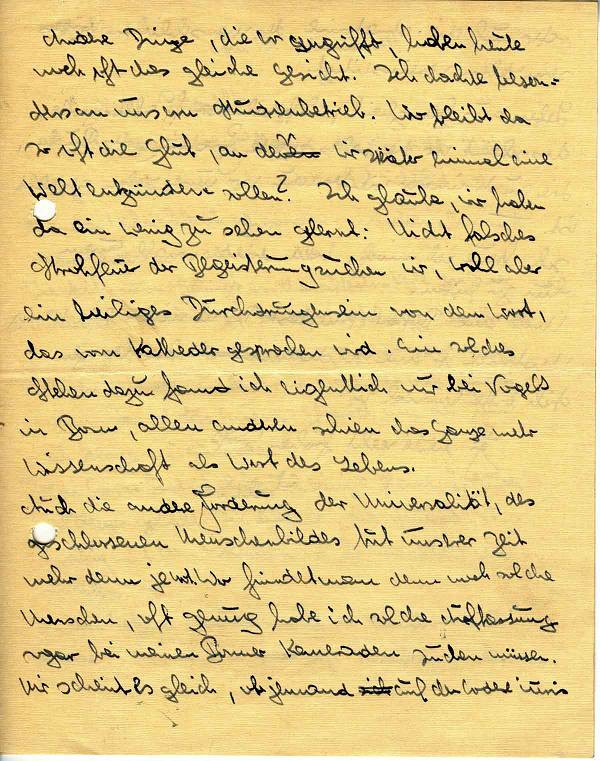 Andere Dinge, die er angreift, haben heute
noch oft das gleiche Gesicht. Ich dachte beson-
ders an unsern Studienbetrieb. Wo bleibt da
so oft die Glut, an der wir später einmal eine
Welt entzünden sollen? Ich glaube, wir haben
da ein wenig zu sehen gelernt: Nicht falsches
Strohfeuer der Begeisterung suchen wir, wohl aber
ein heiliges Durchdrungensein von dem Wort,
das vom Katheder gesprochen wird. Ein solches
Stehen dazu fand ich eigentlich nur bei Vogels
in Bonn, allen anderen schien das Ganze mehr
Wissenschaft als Wort des Lebens.
Auch die andere Forderung der Universalität, des
geschlossenen Menschenbildes tut unsrer Zeit
mehr denn je not. Wo findet man denn noch solche
Menschen, oft genug habe ich solche Auffassung
sogar bei meinen Bonner Kameraden suchen müssen.
Mir scheint es gleich, ob jemand auf den Codex iuris